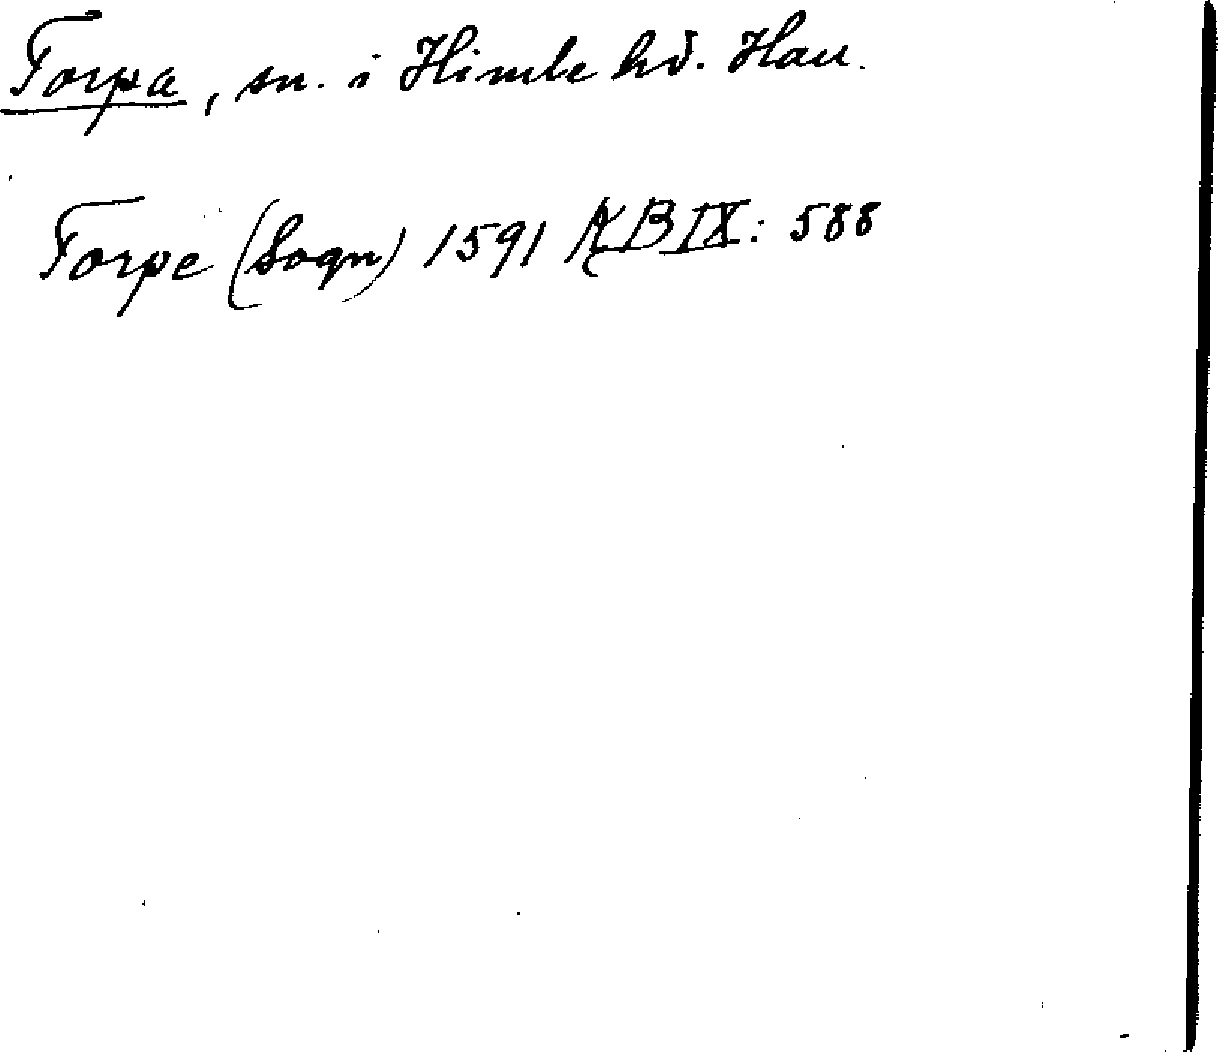 Torpa, sn. i Himle hd. Hall.
Torpe (Sogn) 1591 KB IX: 588